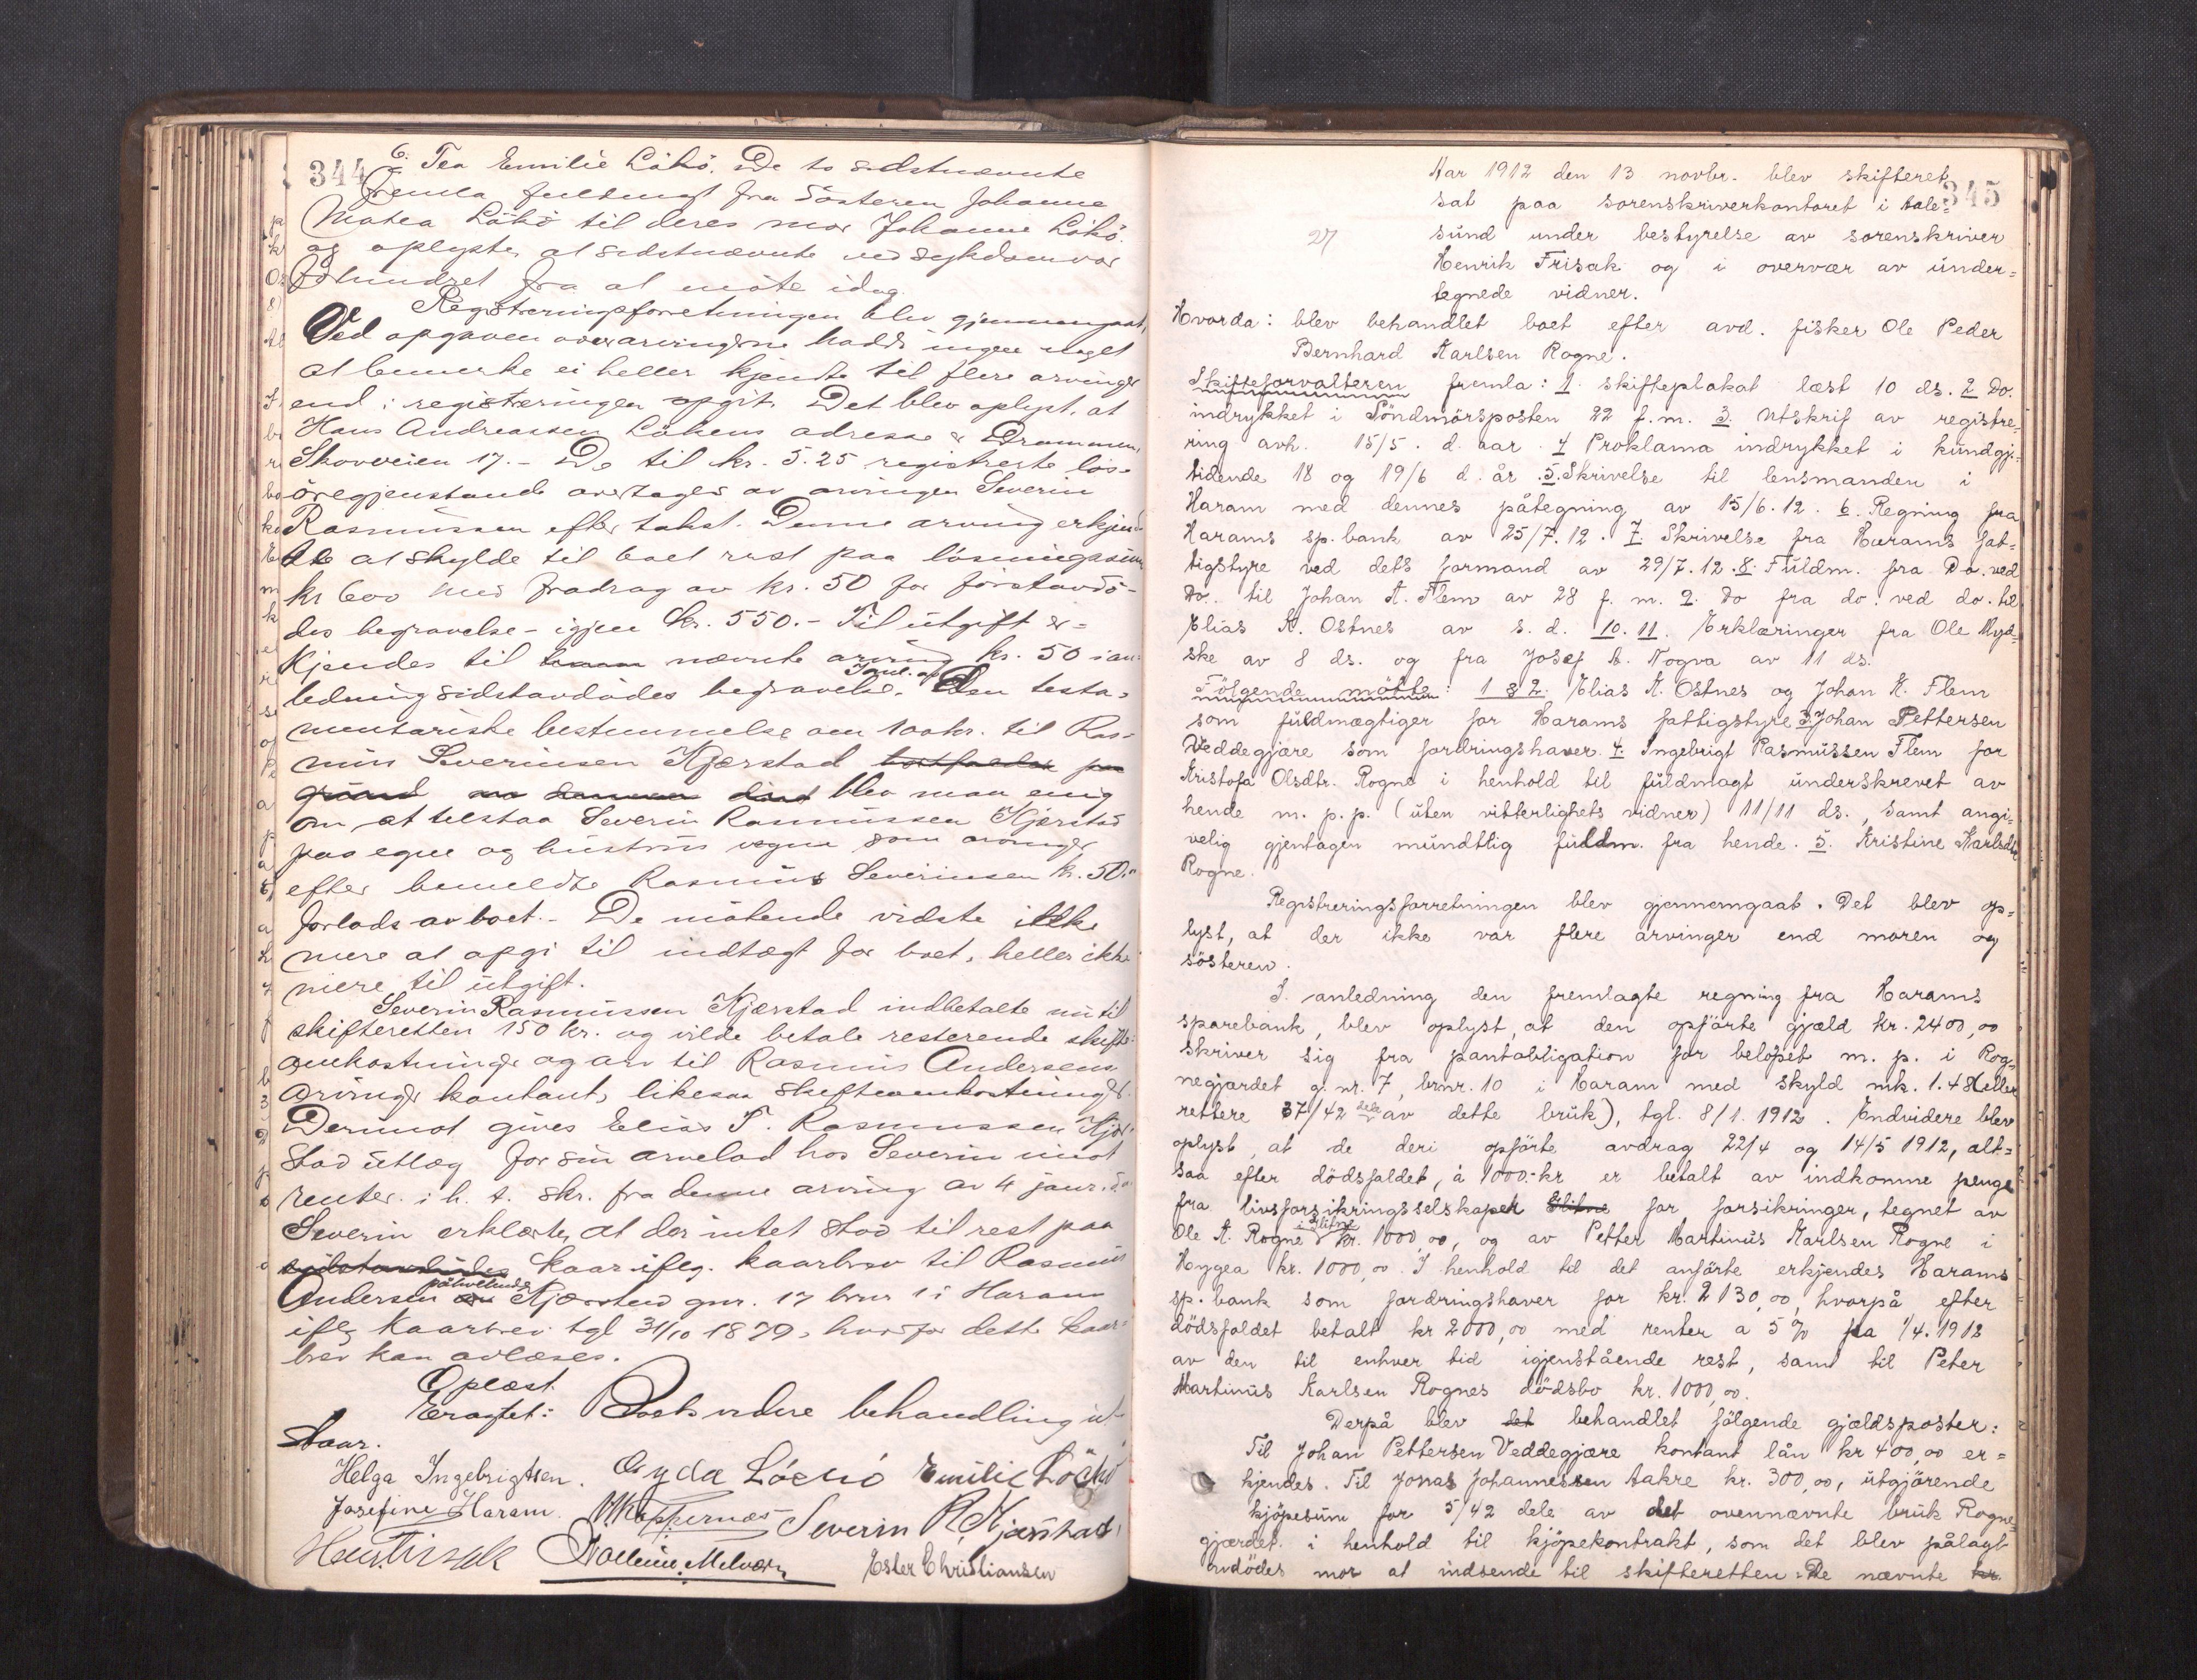 344
6. Tea Emilie Lökö. De to sidstnævnte
fremla fuldmagt fra Søsteren Johanne
Matea Lökö til deres mor Johanne Lökö.
og oplyste, at sidstnævnte ved sykdom var
forhindret fra at møte idag.
Registreringsforretningen blev gjennemgaat,
Ved opgaven over arvingerne hadde ingen noget
at bemerke ei heller kjendte til flere arvinger
end i registreringen opgit. Det blev oplyst, at
Hans Andreassen Lökens adresse er Drammen,
Skovveien 17. - De til kr. 5.25 registrerte løs-
øregjenstande overtages av arvingen Severin
Rasmussen efter takst. Denne arving erkjend-
te at skylde til boet rest paa løsningssum
kr 600 med fradrag av kr. 50 for førstavdø-
des begravelse - igjen kr. 550. - Til utgift er-
kjendes til nævnte arving kr. 50 i an-
ledning sidstavdødes begravelse. Den testa-
mentariske bestemmelse om 100 kr. til Ras-
mus Severinsen Kjærstad bortfalder paa
grund blev man enig
om at tilstaa Severin Rasmussen Kjærstad
paa egne og hustrus vegne som arvinger
efter bemeldte Rasmus Severinsen kr. 50.
forlods av boet. - De møtende vidste ikke
mere at opgi til indtægt for boet, heller ikke
mere til utgift.
Severin Rasmussen Kjærstad indbetalte nu til
skifteretten 150 kr. og vilde betale resterende skifte-
omkostninger og arv til Rasmus Andersens
arvinger kontant, likesaa skifteomkostninger.
Derimot gives Elias T. Rasmussen Kjær-
stad utlæg for sin arvelod hos Severin imot
renter i h. t. skr. fra denne arving av 4 janr. d.a.
Severin erklærte, at der intet stod til rest paa
sidstavdødes kaar ifлg. kaarbrev til Rasmus
Andersen påhvilende Kjærstad gnr. 17 brnr 1 i Haram
iflg kaarbrev tgl 31/10 1879, hvorfor dette kaar-
brev kan avlæses.
Oplæst.
Eragtet: Boets videre behandling ut-
staar.
Helga Ingebrigtsen. Gyda Löckö Emilie Löckö
Josefine Haram. Severin R. Kjærstad
Hen. Frisak Melvær Ester Christiansen
345
27
Aar 1912 den 13 novbr. blev skifteret
sat paa sorenskriverkontoret i Aale-
sund under bestyrelse av sorenskriver
Henrik Frisak og i overvær av under-
tegnede vidner.
Hvorda: blev behandlet boet efter avd. fisker Ole Peder
Bernhard Karlsen Rogne.
Skifteforvalteren fremla: 1. skifteplakat læst 10 ds. 2 Do.
indrykket i Søndmørsposten 22 f.m. 3. Utskrif av registre-
ring avh. 15/5. d. aar. 4 Proklama indrykket i kundgj.-
tidende 18 og 19/6 d. år. 5. Skrivelse til lensmanden i
Haram med dennes påtegning av 15/6.12. 6. Regning fra
Harams sp. bank av 25/7.12. 7. Skrivelse fra Harams fat-
tigstyre ved dets formand av 29/7.12. 8. Fuldm. fra Do. ved
Do. til Johan A. Flem av 28 f. m. 9. Do fra do. ved do. til
Elias K. Ostnes av s. d. 10. 11. Erklæringer fra Ole Myd-
ske av 8 ds. og fra Josef A. Nogva av 11 ds.
Følgende møtte: 1 & 2. Elias K. Ostnes og Johan A. Flem
som fuldmægtiger for Harams fattigstyre 3. Johan Pettersen
Veddegjære som fordringshaver. 4. Ingebrigt Rasmussen Flem for
Kristofa Olsdtr. Rogne i henhold til fuldmagt underskrevet av
hende m. p. p. (uten vitterlighets vidner) 11/11 ds., samt angi-
velig gjentagen mundtlig fuldm. fra hende. 5. Kristine Karlsdtr
Rogne.
Registreringsforretningen blev gjennemgaat. Det blev op-
lyst, at der ikke var flere arvinger end moren og
søsteren.
I anledning den fremlagte regning fra Harams
sparebank, blev oplyst, at den opførte gjæld kr. 2400,00
skriver sig fra pantobligation for beløpet m. p. i Rog-
negjærdet g. nr. 7, brnr. 10 i Haram med skyld mk. 1.48 eller
rettere 37/42 dele av dette bruk), tgl. 8/1. 1912. Endvidere blev
oplyst, at de deri opførte avdrag 22/4 og 14/5 1912, alt-
saa efter dødsfaldet, à 1000.- kr er betalt av indkomne penge
fra livsforsikringsselskapet Glitne for forsikringer, tegnet av
Ole K. Rogne i Glitne kr. 1000,00, og av Petter Martinus Karlsen Rogne i
Hygea kr. 1000,00. I henhold til det anførte erkjendes Harams
sp. bank som fordringshaver for kr. 2130,00, hvorpå efter
dødsfaldet betalt kr 2000,00 med renter a 5 % fra 1/4. 1912
av den til enhver tid igjenstående rest, samt til Peter
Martinus Karlsen Rognes dødsbo kr. 1000,00.
Derpå blev det behandlet følgende gjældsposter:
Til Johan Pettersen Veddegjære kontant lån kr 400,00 er-
kjendes. Til Jonas Johannessen Aakre kr. 300,00, utgjørende
kjøpesum for 5/42 dele av det ovennævnte bruk Rogne-
gjærdet i henhold til kjøpekontrakt, som det blev pålagt
avdødes mor at indsende til skifteretten. De nævnte kr.